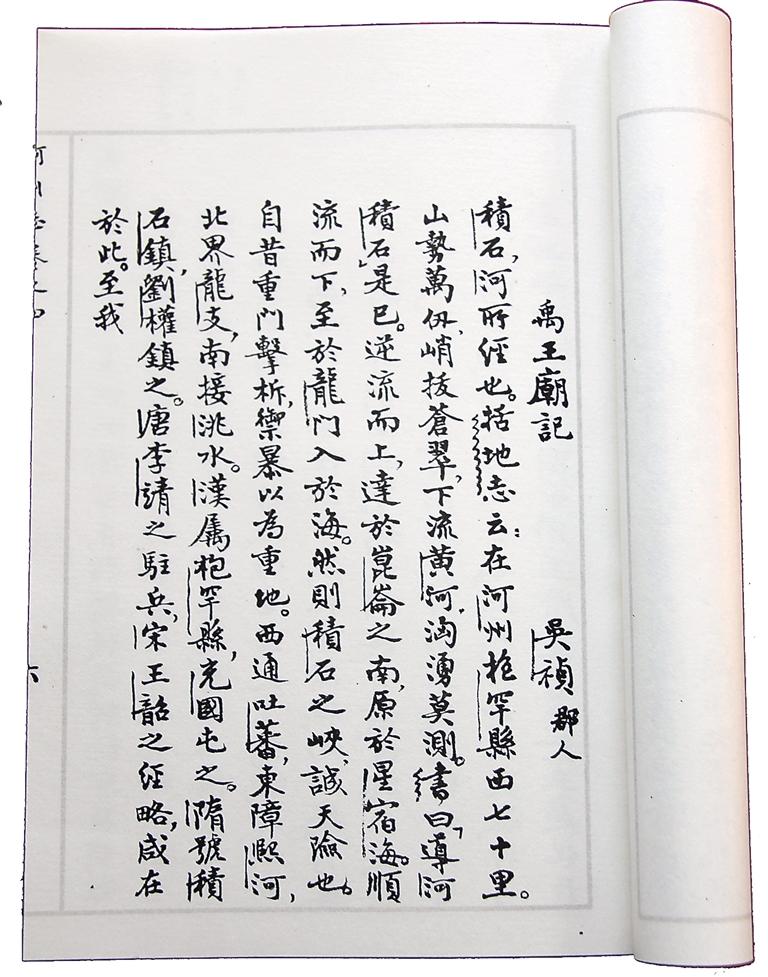 禹王廟記 吳禎 郡人
積石，河所經也。括地志云：在河州枹罕縣西七十里。
山勢萬仭，峭拔蒼翠，下流黄河，洶湧莫測。書曰「導河
積石」是已。逆流而上，達於崑崙之南，原於星宿海。順
流而下，至於龍门入於海。然則積石之峽，誠天險也。
自昔重门擊柝，禦暴以為重地。西通吐蕃，東障熙河，
北界龍支，南接洮水。漢属枹罕縣，充國屯之。隋號積
石鎮，劉權鎮之。唐李靖之駐兵，宋王韶之经略，咸在
於此。至我
河州志卷之四
六